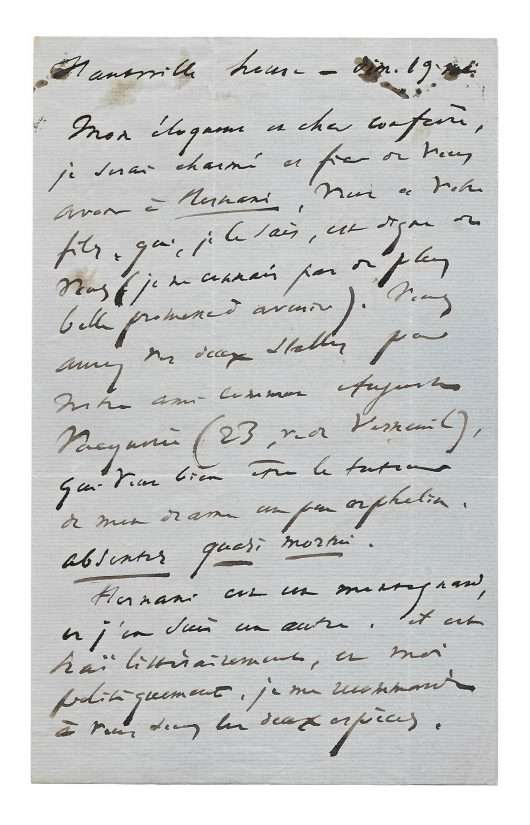 Hauteville house – dim. 19 mai
Mon éloquent et cher confrère,
je serai charmé et fier de vous
avoir à Hernani, vous et votre
fils, qui, je le sais, est digne de
vous (je ne connais pas de plus
belle promesse d'avenir). Vous
aurez vos deux stalles par
notre ami commun Auguste
Vacquerie (23, r. de Verneuil),
qui veut bien être le tuteur
de mon drame un peu orphelin.
absentes quasi mortui.
Hernani est un montagnard,
et j'en suis un autre. Il est
haï littérairement, et moi
politiquement. je me recommande
à vous sous les deux espèces.